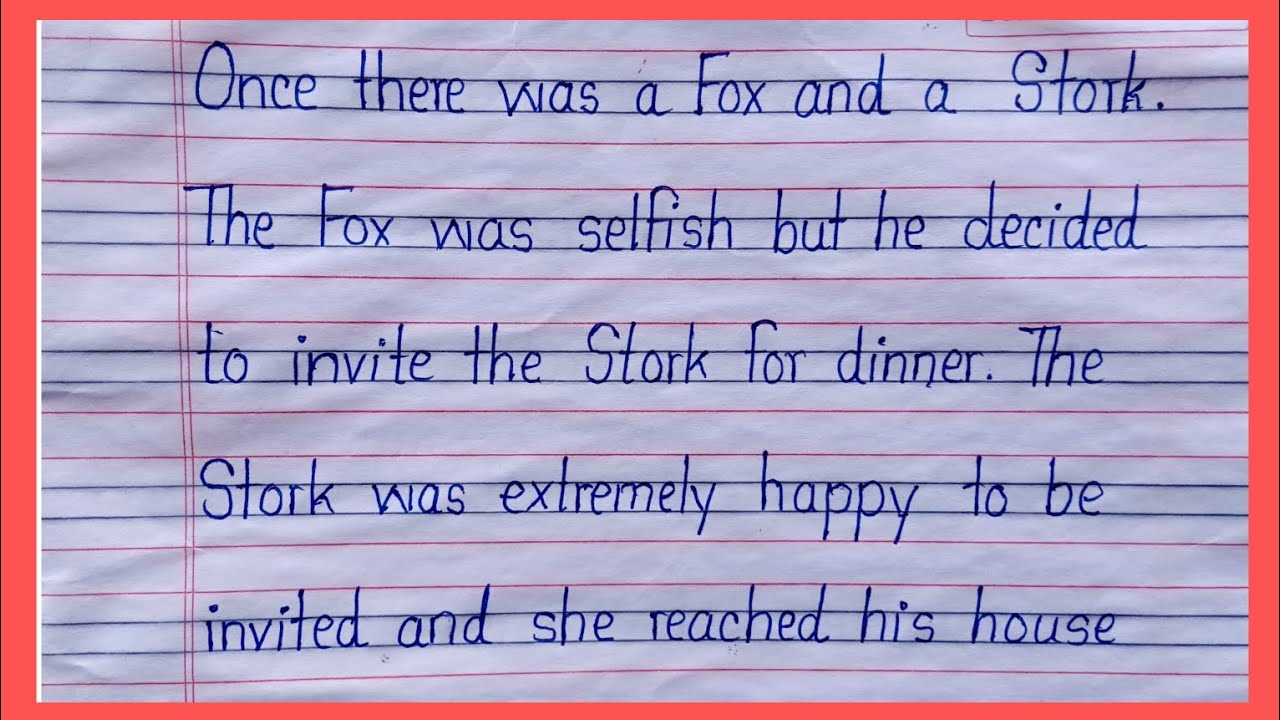 Once there was a Fox and a Stork.
The Fox was selfish but he decided
to invite the Stork for dinner. The
Stork was extremely happy to be
invited and she reached his house